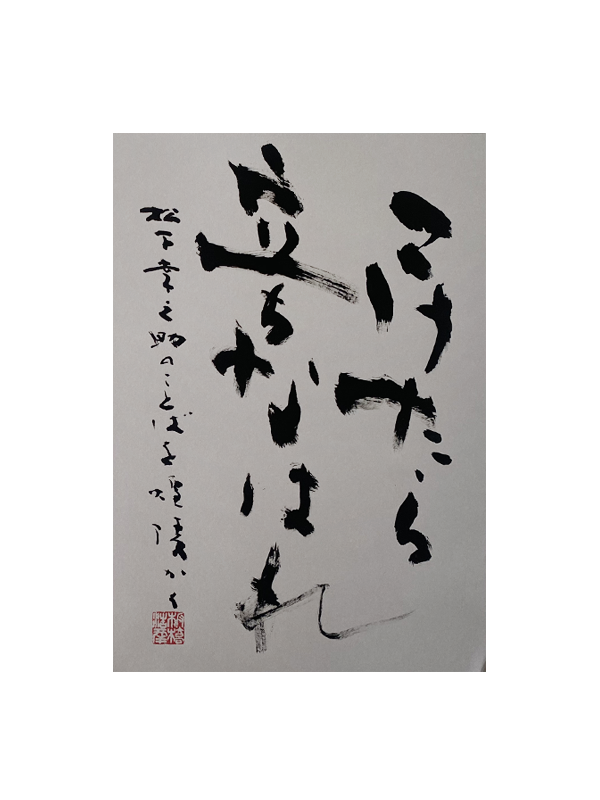 こけたら
立ちなはれ
松下幸之助のことばを
かく